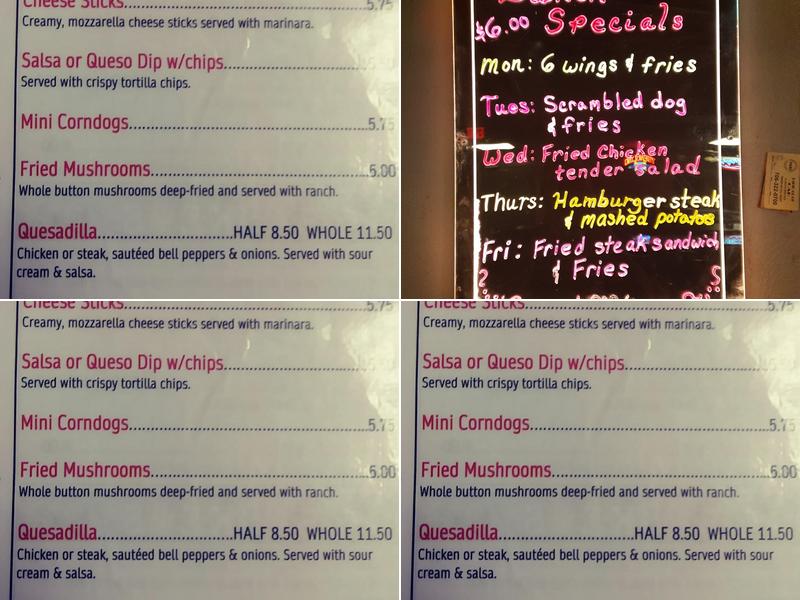 Cheese Sticks 5.75
Creamy, mozzarella cheese sticks served with marinara.
Salsa or Queso Dip w/chips
Served with crispy tortilla chips.
Mini Corndogs 5.75
Fried Mushrooms 5.00
Whole button mushrooms deep-fried and served with ranch.
Quesadilla HALF 8.50 WHOLE 11.50
Chicken or steak, sautéed bell peppers & onions. Served with sour
cream & salsa.
$6.00 Specials
Mon: 6 wings & fries
Tues: Scrambled dog
& fries
Wed: Fried Chicken
tender salad
Thurs: Hamburger steak
& mashed potatoes
Fri: Fried steak sandwich
& Fries
Cheese Sticks 5.75
Creamy, mozzarella cheese sticks served with marinara.
Salsa or Queso Dip w/chips
Served with crispy tortilla chips.
Mini Corndogs 5.75
Fried Mushrooms 5.00
Whole button mushrooms deep-fried and served with ranch.
Quesadilla HALF 8.50 WHOLE 11.50
Chicken or steak, sautéed bell peppers & onions. Served with sour
cream & salsa.
Cheese Sticks 5.75
Creamy, mozzarella cheese sticks served with marinara.
Salsa or Queso Dip w/chips
Served with crispy tortilla chips.
Mini Corndogs 5.75
Fried Mushrooms 5.00
Whole button mushrooms deep-fried and served with ranch.
Quesadilla HALF 8.50 WHOLE 11.50
Chicken or steak, sautéed bell peppers & onions. Served with sour
cream & salsa.